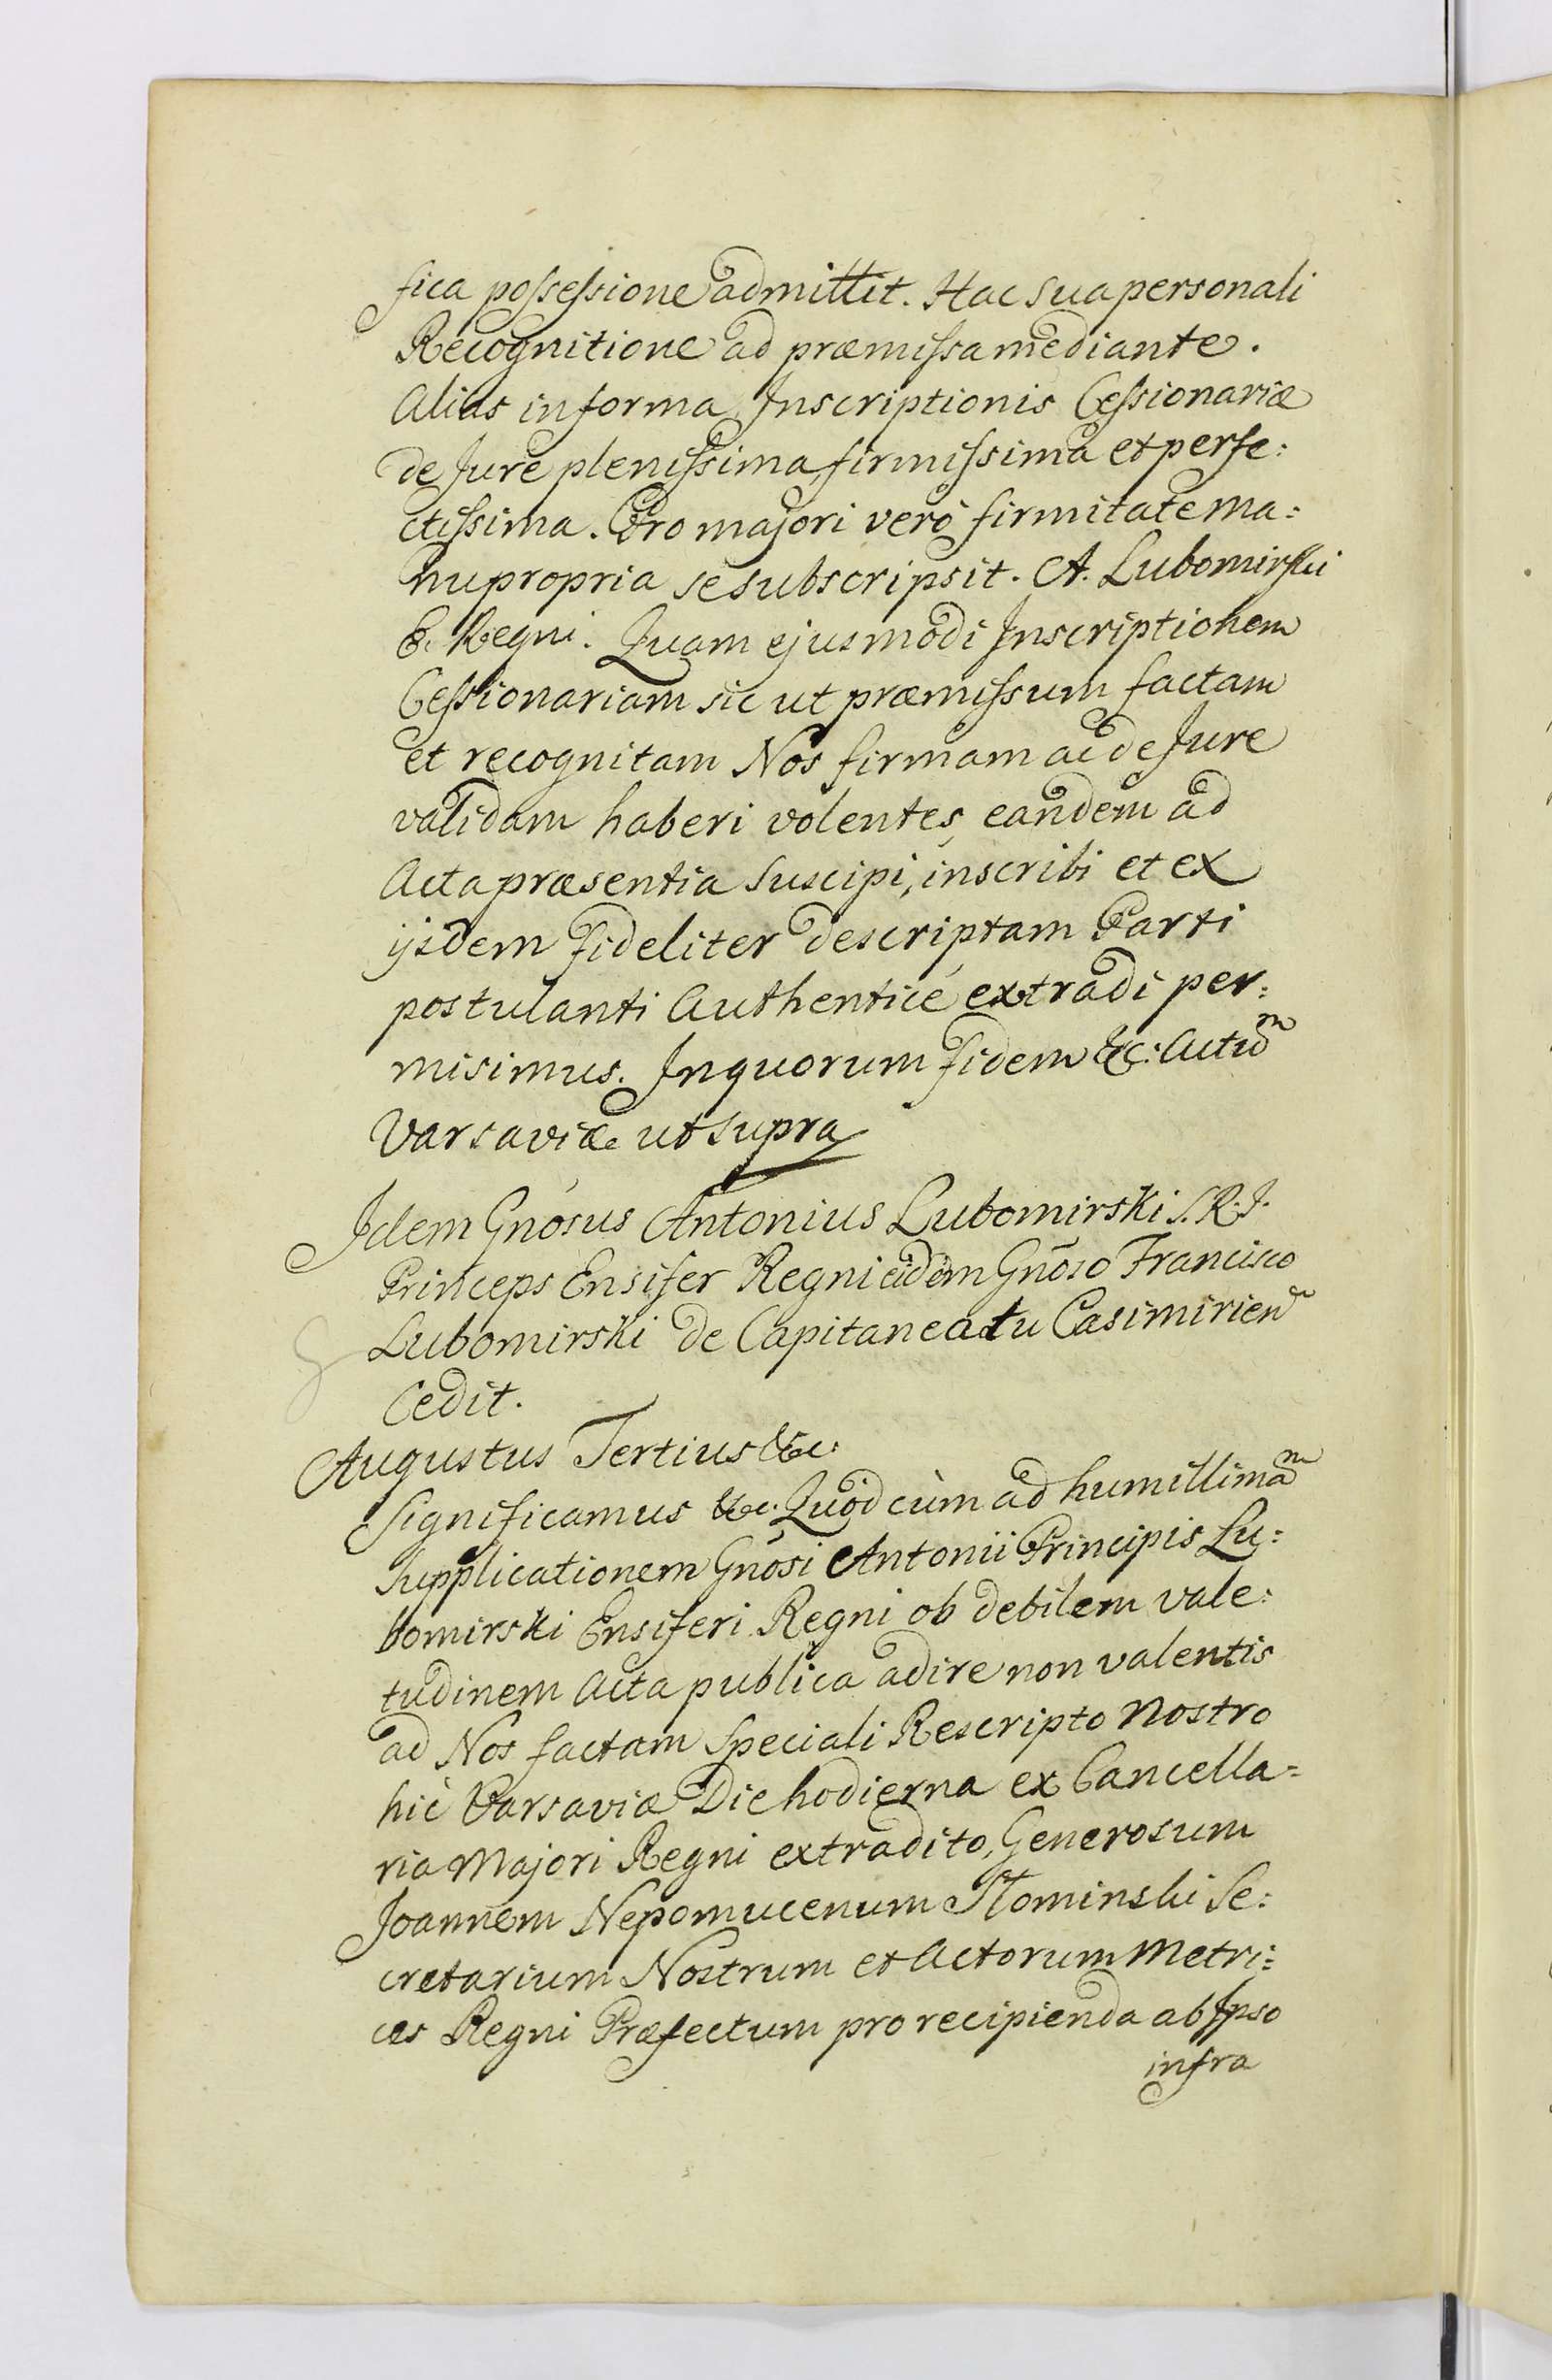 fica possessione admittit. Hac sua personali
Recognitione ad præmissa mediante.
Alias in forma Inscriptionis Cessionariæ
de Jure plenissima, firmissima et perfe:
ctissima. Pro majori verò firmitate ma:
nu propria se subscripsit. A. Lubomirski
E. Regni. Quam ejusmodi Inscriptionem
Cessionariam sic ut præmissum factam
et recognitam Nos firmam ac de Jure
validam haberi volentes, eandem ad
Acta præsentia suscipi, inscribi et ex
ijsdem fideliter descriptam Parti
postulanti Authenticè extradi per:
misimus. In quorum fidem &c: Actũm
Varsaviæ ut supra
Idem Gnõsus Antonius Lubomirski S. R. I.
Princeps Ensifer Regni eidem Gnõso Francisco
Lubomirski de Capitaneatu Casimirien
Cedit.
Augustus Tertius &c.
Significamus &c. Quòd cùm ad humillimam
supplicationem Gnõsi Antonii Principis Lu:
bomirski Ensiferi Regni ob debilem vale:
tudinem Acta publica adire non valentis
ad Nos factam speciali Rescripto Nostro
hic Varsaviæ Die hodierna ex Cancella:
ria Majori Regni extradito, Generosum
Joannem Nepomucenum Słominski Se:
cretarium Nostrum et Actorum Metri:
ces Regni Præfectum pro recipienda ab Ipso
infra